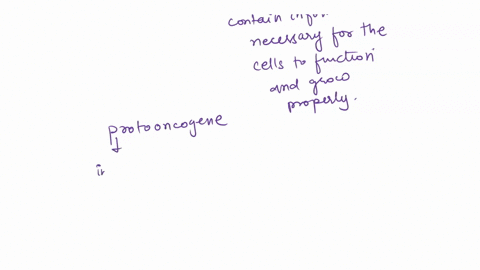 contain
necessary for the
cells to function
and grow
properly.
protooncogene